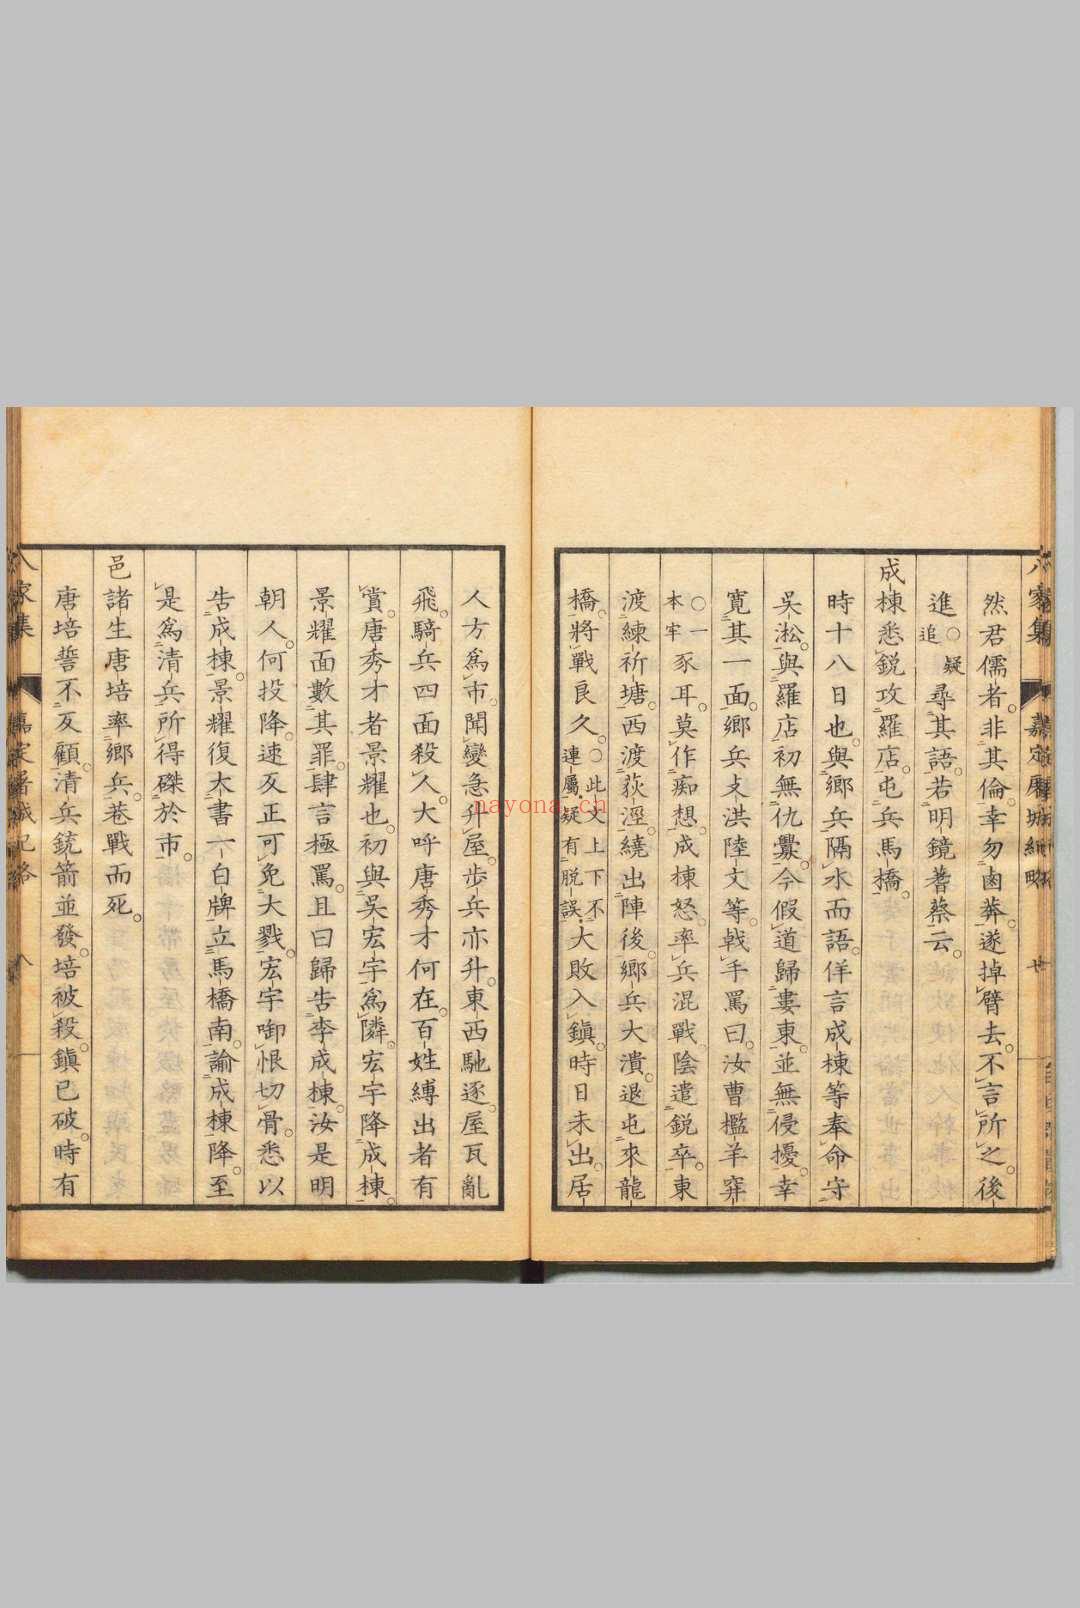 然君儒者。非其倫。幸勿鹵莽。遂掉臂去。不言所之。後
進○疑追尋其語。若明鏡蓍蔡云。
成棟悉銳攻羅店。屯兵馬橋。
時十八日也。與鄉兵隔水而語。佯言成棟等奉命守
吳淞。與羅店初無仇釁。今假道歸婁東。並無侵擾。幸
寬其一面。鄉兵支洪陸文等。戟手罵曰。汝曹檻羊穽
○一本牢豕耳。莫作痴想。成棟怒。率兵混戰。陰遣銳卒。東
渡練祈塘。西渡荻涇。繞出陣後。鄉兵大潰。退屯來龍
橋。將戰良久。○此文上下不連屬。疑有脫誤。大敗入鎮。時日未出。居
人方爲市。聞變急升屋。步兵亦升。東西馳逐。屋瓦亂
飛。騎兵四面殺人。大呼唐秀才何在。百姓縛出者有
賞。唐秀才者景耀也。初與吳宏宇爲隣。宏宇降成棟。
景耀面數其罪。肆言極罵。且曰歸告李成棟。汝是明
朝人。何投降。速反正可免大戮。宏宇啣恨切骨。悉以
告成棟。景耀復大書一白牌。立馬橋南。諭成棟降。至
是爲清兵所得。磔於市。
邑諸生唐培率鄉兵。巷戰而死。
唐培誓不反顧。清兵銃箭並發。培被殺。鎮已破。時有
八家集
嘉定屠城紀略
nayona.cn